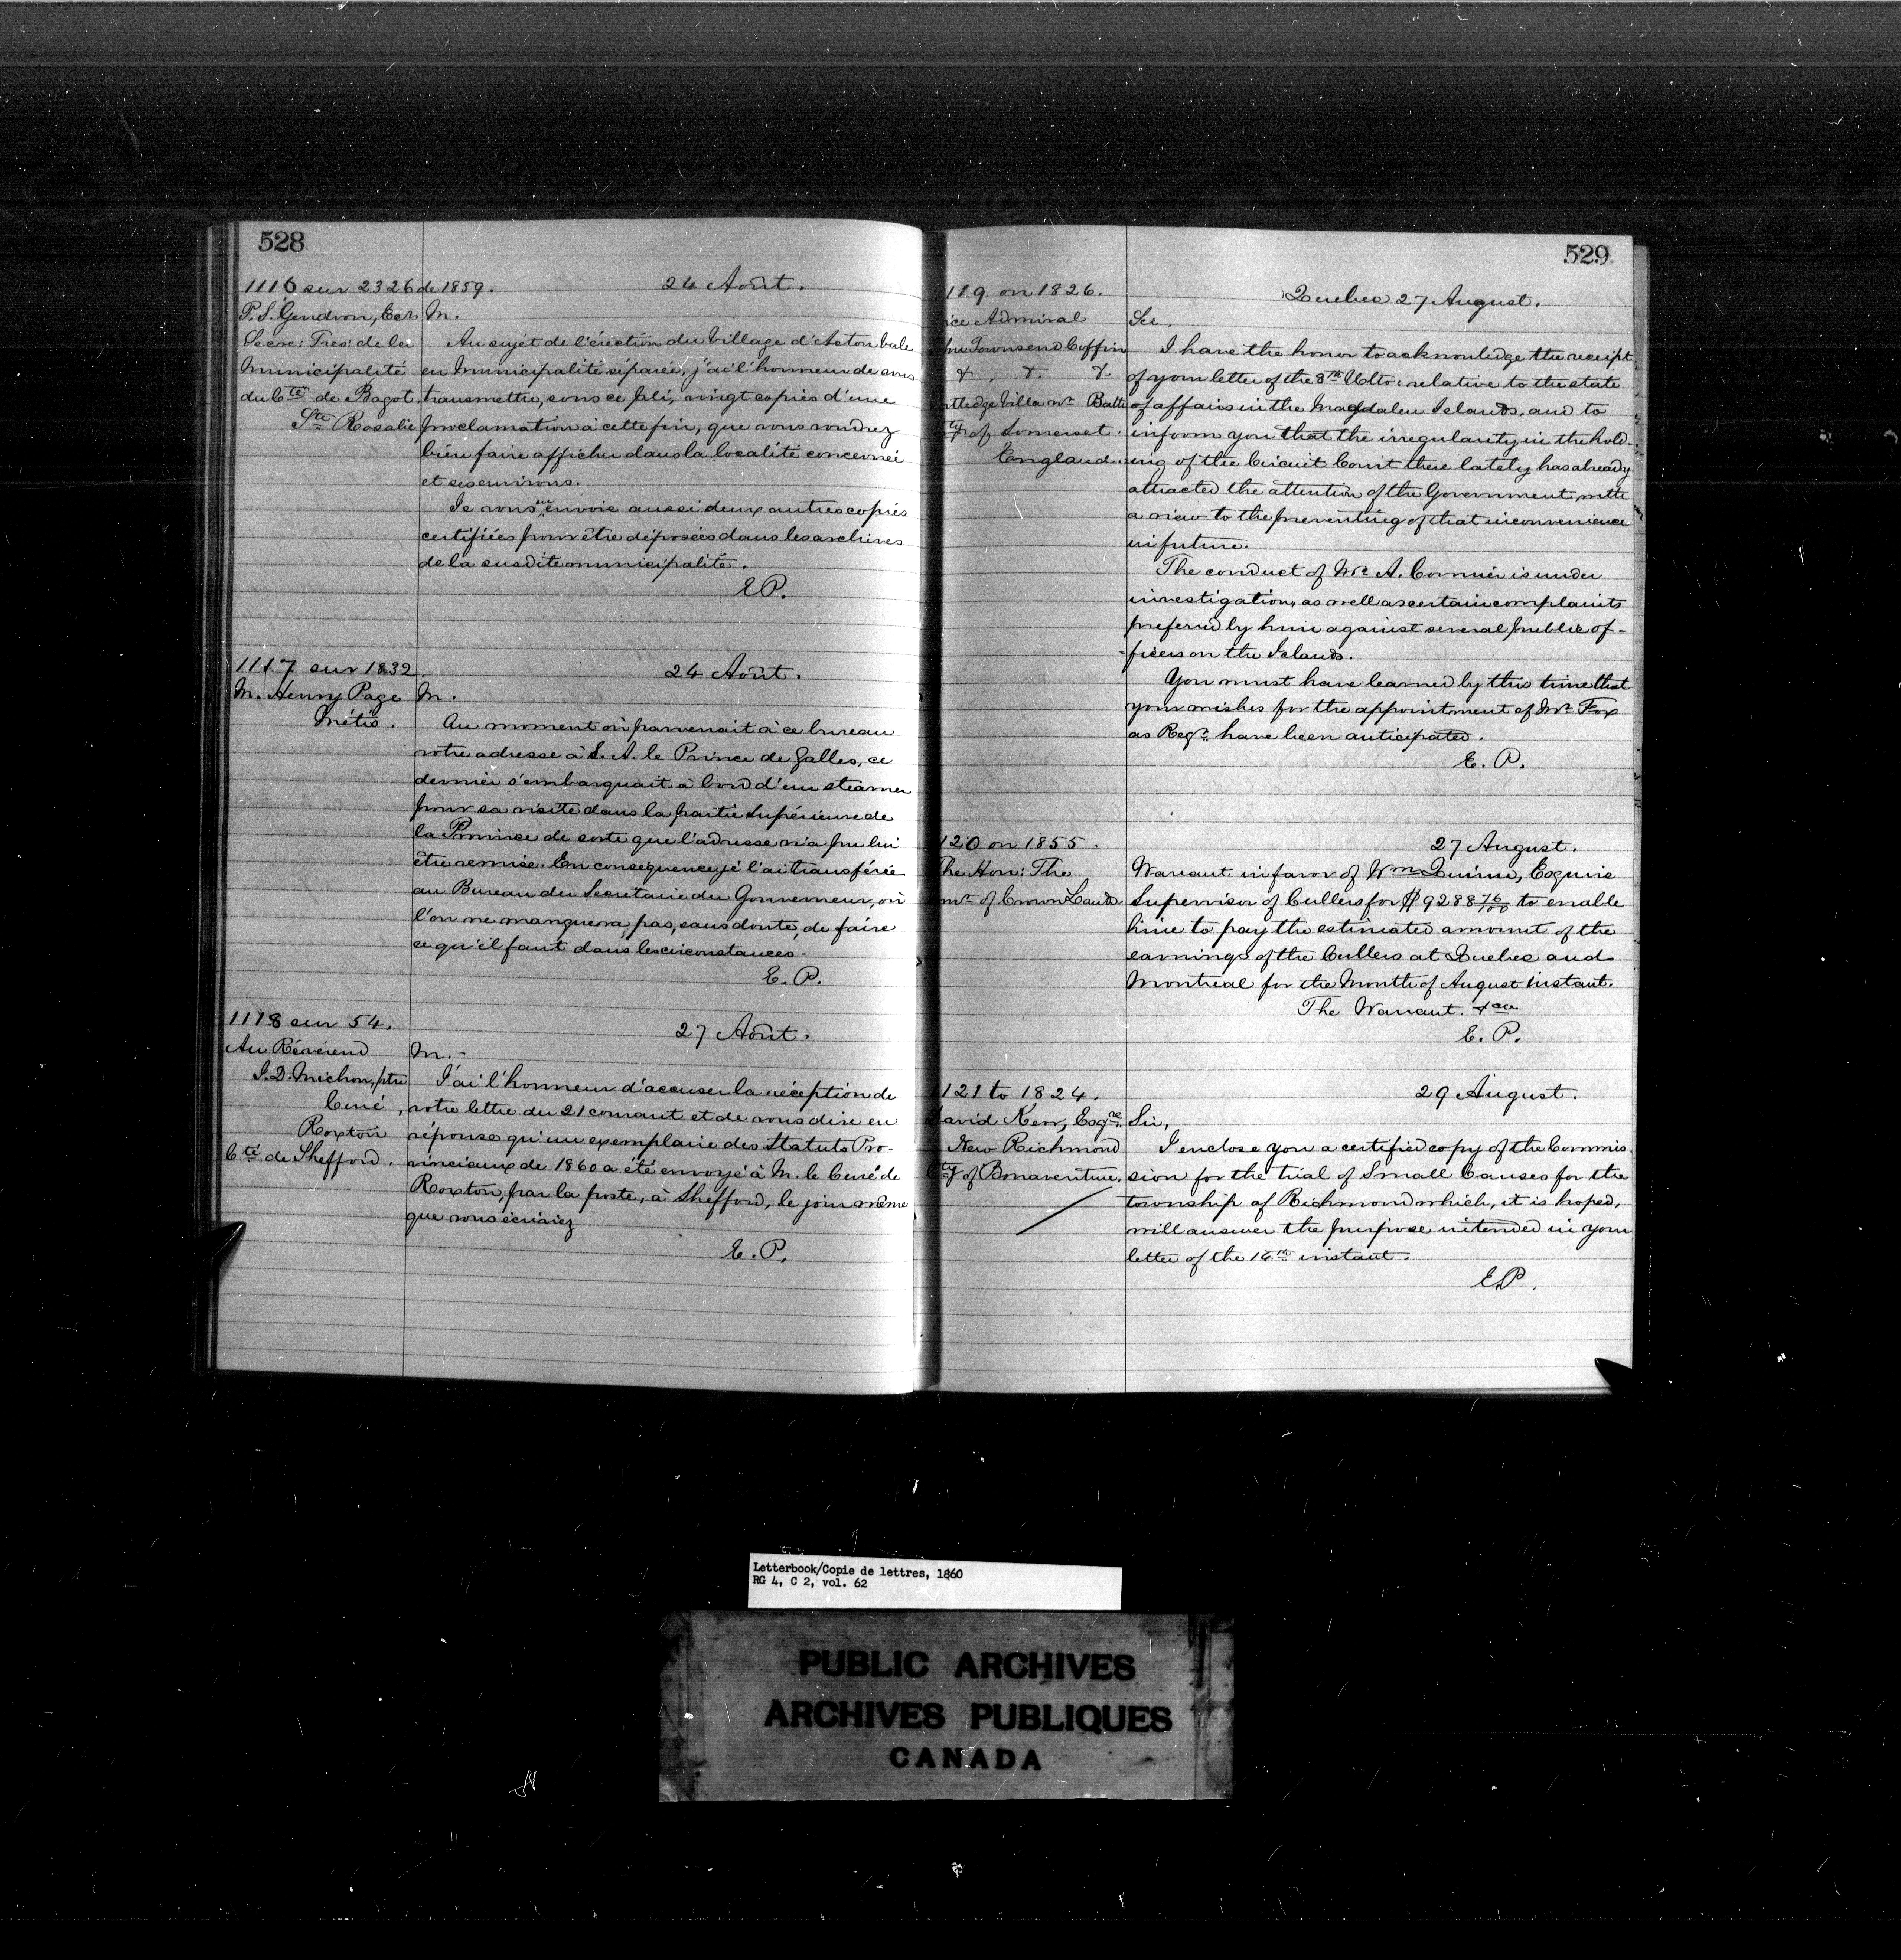 528
1116 sur 2326 de 1859.
24 Août.
P. S. Gendron, Ecr
Secre: Tres: de la
Municipalité
du Cté de Bagot.
Ste Rosalie
M.
Au sujet de l'érection du Village d'Acton Vale
en Municipalité séparée, j'ai l'honneur de vous
transmettre, sous ce pli, vingt copies d'une
proclamation à cette fin, que vous voudrez
bien faire afficher dans la localité concernée
et ses environs.
Je vous en envoie aussi deux autres copies
certifiées pour être déposées dans les archives
de la susdite municipalité.
E P.
1117 sur 1832.
24 Août.
M. Henry Page
Métis.
M.
Au moment où parvenait à ce bureau
votre adresse à S. A. le Prince de Galles, ce
dernier s'embarquait à bord d'un steamer
pour sa visite dans la partie Supérieure de
la Province de sorte que l'adresse n'a pu lui
être remise. En conséquence je l'ai transférée
au Bureau du Secrétaire du Gouverneur, où
l'on ne manquera pas, sans doute, de faire
ce qu'il faut dans les circonstances.
E. P.
1118 sur 54.
27 Août.
Au Révérend
J. D. Michon, ptre
Curé,
Roxton
Cté de Shefford.
M.-
J'ai l'honneur d'accuser la réception de
votre lettre du 21 courant et de vous dire en
réponse qu'un exemplaire des Statuts Pro-
vinciaux de 1860 a été envoyé à M. le Curé de
Roxton, par la poste, à Shefford, le jour même
que vous écriviez
E. P.
529
119 on 1826.
Quebec 27 August.
ice Admiral
hn Townsend Coffin
&. &. &.
Villa nr Bath
Cty of Somerset.
England.
Sir.
I have the honor to acknowledge the receipt
of your letter of the 8th Ulto: relative to the state
of affairs in the Magdalen Islands, and to
inform you that the irregularity in the hold-
ing of the Circuit Court there lately has already
attracted the attention of the Government, with
a view to the preventing of that inconvenience
in future.
The conduct of Mr A. Cormier is under
investigation, as well as certain complaints
preferred by him against several public of-
ficers on the Islands.
You must have learned by this time that
your wishes for the appointment of Mr Fox
as Regr. have been anticipated.
E. P.
120 on 1855.
27 August.
The Hon: The
mr of Crown Lands
Warrant in favor of Wm Quinn, Esquire
Supervisor of Cullers for $9288 76/100 to enable
him to pay the estimated amount of the
earnings of the Cullers at Quebec and
Montreal for the Month of August instant.
The Warrant. &ca
E. P.
1121 to 1824.
29 August.
David Kerr, Esqre.
New Richmond
Cty of Bonaventure.
Sir,
I enclose you a certified copy of the Commis-
sion for the trial of Small Causes for the
township of Richmond which, it is hoped,
will answer the purpose intended in your
letter of the 14th instant.
E.P.
Letterbook/Copie de lettres, 1860
RG 4, C 2, vol. 62
PUBLIC ARCHIVES
ARCHIVES PUBLIQUES
CANADA